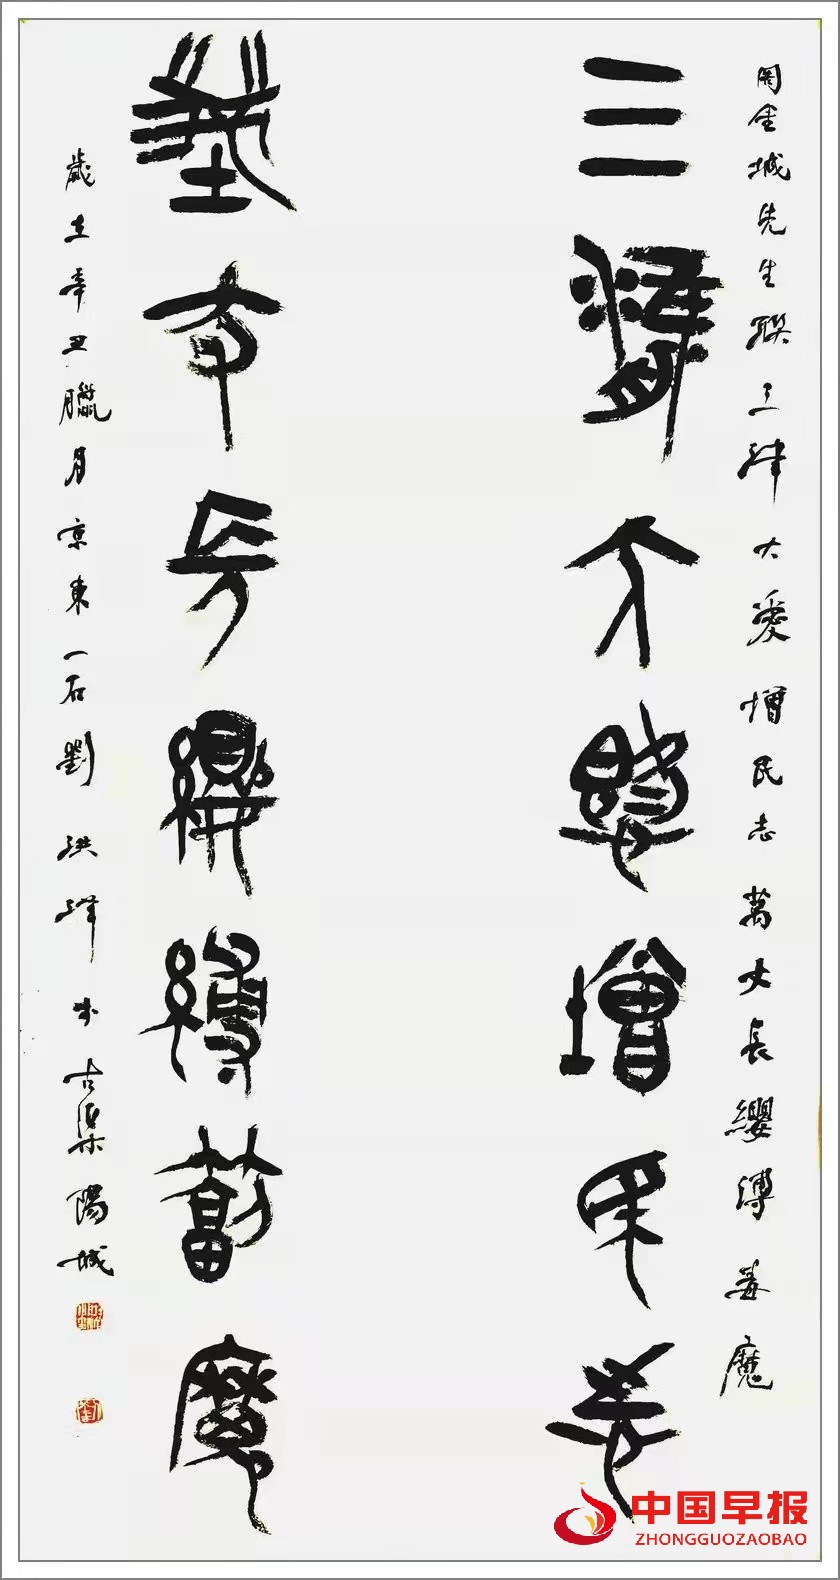 周金城先生聯三津大愛增民志萬丈長纓縛毒魔
三津大愛增民志
萬丈長纓縛毒魔
歲在辛丑臘月京東一石劉洪澤書古渠陽城
中国早报
ZHONGGUOZAOBAO